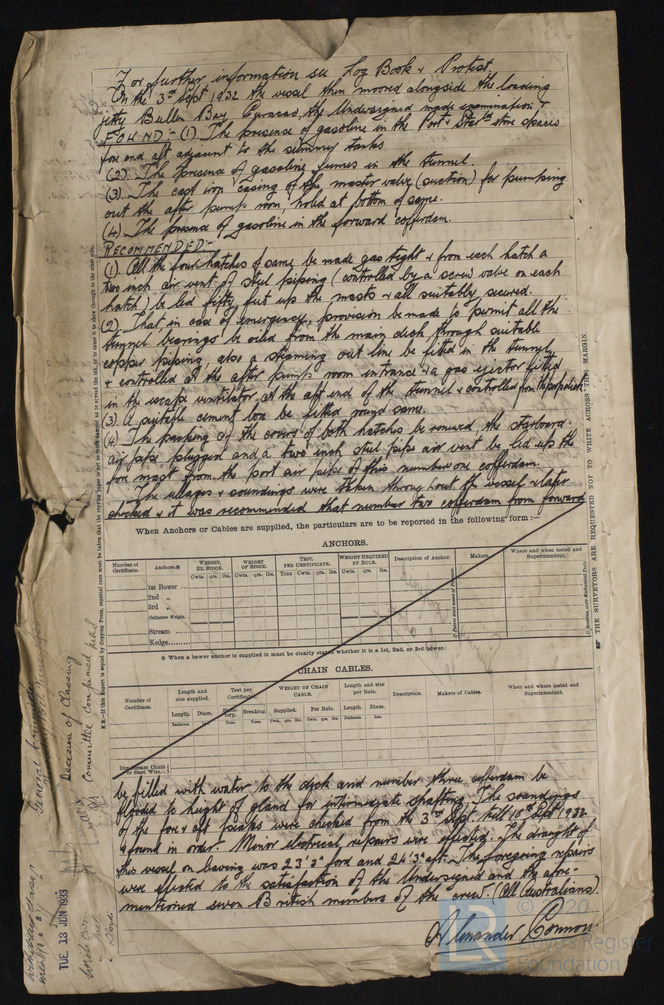 For further information see Log Book & Protest.
On the 3rd Sept 1932 the vessel then moored alongside the loading
jetty Bullen Bay, Curacao, the Undersigned made examination &
FOUND:- (1) The presence of gasoline in the Port & Starbd store spaces
fore and aft adjacent to the summer tanks
(2). The presence of gasoline fumes in the tunnel.
(3). The cast iron casing of the master valve (suction) for pumping
out the after pump room, holed at bottom of same.
(4). The presence of gasoline in the forward cofferdam.
RECOMMENDED:-
(1). All the four hatches of same be made gas tight & from each hatch a
two inch air vent of steel piping (controlled by a screw valve on each
hatch) be led fifty feet up the masts & all suitably secured.
(2). That, in case of emergency, provision be made to permit all the
tunnel bearings be oiled from the main deck through suitable
copper piping, also a steaming out line be fitted in the tunnel
& controlled at the after pump room entrance & a gas ejector fitted
in the escape ventilator at the aft end of the tunnel & controlled from the poop deck.
(3). A suitable cement box be fitted round same.
(4). The packing of the covers of both hatches be renewed the starboard
air pipe plugged and a two inch steel pipe air vent be led up the
fore mast from the port air pipe of this number one cofferdam.
The ullages & soundings were taken throughout the vessel & later
checked & it was recommended that number two cofferdam from forward
When Anchors or Cables are supplied, the particulars are to be reported in the following form :—
ANCHORS.
Number of Certificate. Anchors.* WEIGHT, EX. STOCK. WEIGHT OF STOCK. TEST, PER CERTIFICATE. WEIGHT REQUIRED BY RULE. Description of Anchor. Makers. Where and when tested and Superintendent.
Cwts. qrs. lbs. Cwts. qrs. lbs. Tons Cwt. qrs. lbs. Cwts. qrs. lbs.
1st Bower
2nd „
3rd „
Collective Weight.
Stream
Kedge
* When a bower anchor is supplied it must be clearly stated whether it is a 1st, 2nd, or 3rd bower.
CHAIN CABLES.
Number of Certificate. Length and size supplied. Test per Certificate. WEIGHT OF CHAIN CABLE. Length and size per Rule. Description. Makers of Cables. Where and when tested and Superintendent.
Length. Diam. Statutory. Breaking. Supplied. Per Rule. Length. Diam.
Fathoms. Tons. Tons. Cwts. qrs. lbs. Cwts. qrs. lbs. Fathoms.
Iron Stream Chain or Steel Wire
be filled with water to the deck and number three cofferdam be
flooded to height of gland for intermediate shafting. The soundings
of the fore & aft peaks were checked from the 3rd Sept till 10th Sept 1932
& found in order. Minor electrical repairs were effected. The draught of
this vessel on leaving was 23'3" ford and 24'3" aft. The foregoing repairs
were effected to the satisfaction of the Undersigned and the afore-
mentioned seven British members of the crew. (All Australians).
Alexander Connon
THE SURVEYORS ARE REQUESTED NOT TO WRITE ACROSS THE MARGIN.
Decision of Classing
Committee confirmed
TUE. 13 JUN 1933
LR
© 2020
Lloyd's Register
Foundation